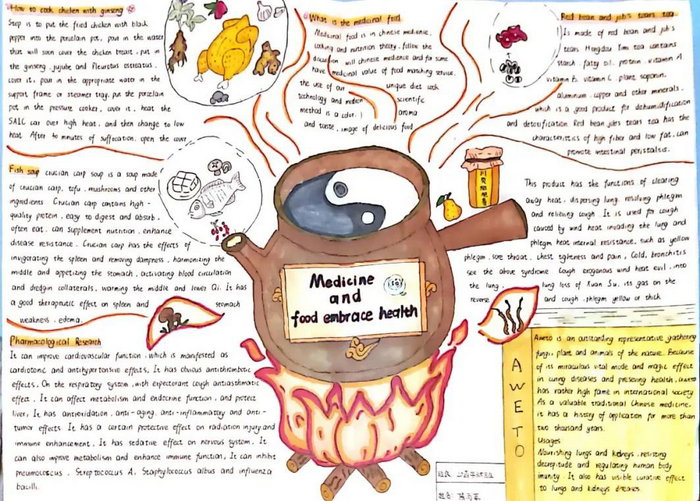 How to cook chicken with ginseng
Step is to put the fried chicken with black
pepper into the porcelain pot, pour in the water
that will soon cover the chicken breast, put in
the ginseng, jujube and Pleurotus ostreatus,
cover it, pour in the appropriate water in the
support frame or steamer tray, put the porcelain
pot in the pressure cooker, cover it, heat the
SAIC car over high heat, and then change to low
heat. After 40 minutes of suffocation, open the cover
What is the medicinal food
Medicinal food is in chinese medicine,
cooking and nutrition theory, follow the
will chinese medicine and for some
have medicinal value of food matching service,
the use of our unique diet cook
technology and modern scientific
method is a color, aroma
and taste, image of delicious food
Red bean and job's tears tea
Is made of red bean and job's
tears. Hongdou Yimi tea contains
starch, fatty oil, protein, vitamin A
vitamin B, vitamin C, plant saponin,
aluminum, copper and other minerals,
which is a good product for dehumidification
and detoxification. Red bean job's tears tea has the
characteristics of high fiber and low fat, can
promote intestinal peristalsis.
Fish soup crucian carp soup is a soup made
of crucian carp, tofu, mushrooms and other
ingredients. Crucian carp contains high-
quality protein, easy to digest and absorb,
often eat, can supplement nutrition, enhance
disease resistance. Crucian carp has the effects of
invigorating the spleen and removing dampness, harmonizing the
middle and appetizing the stomach, activating blood circulation
and dredgin collaterals, warming the middle and lower Qi. It has
a good therapeutic effect on spleen and stomach
weakness, edema.
This product has the functions of clearing
away heat, dispersing lung, resolving phlegm
and relieving cough. It is used for cough
caused by wind heat invading the lung and
phlegm heat internal resistance, such as yellow
phlegm, sore throat, chest tightness and pain, Cold, bronchitis
see the above syndrome. Cough exogenous wind heat evil, into
the lung, lung loss of Xuan Su, its gas on the
reverse and cough, phlegm yellow or thick
Medicine
and
food embrace health
Pharmacological Research
It can improve cardiovascular function, which is manifested as
cardiotonic and antihypertensive effects. It has obvious antithrombotic
effects. On the respiratory system, with expectorant cough antiasthmatic
effect. It can affect metabolism and endocrine function, and protect
liver. It has antioxidation, anti-aging, anti-inflammatory and anti-
tumor effects. It has a certain protective effect on radiation injury and
immune enhancement. It has sedative effect on nervous system. It
can also improve metabolism and enhance immune function. It can inhibit
pneumococcus, Streptococcus A, Staphylococcus albus and influenza
bacilli.
AWETO
Aweto is an outstanding representative gathering
fungi, plant and animals of the nature. Because
of its miraculous vital mode and magic effect
in curing diseases and preserving health, aweto
has rather high fame in international society.
As a valuable traditional Chinese medicine,
it has a history of application for more than
two thousand years.
Usages
Nourishing lungs and kidneys, resisting
decrepitude and regulating human body
immunity. It also has visible curative effect
to lungs and kidneys diseases.